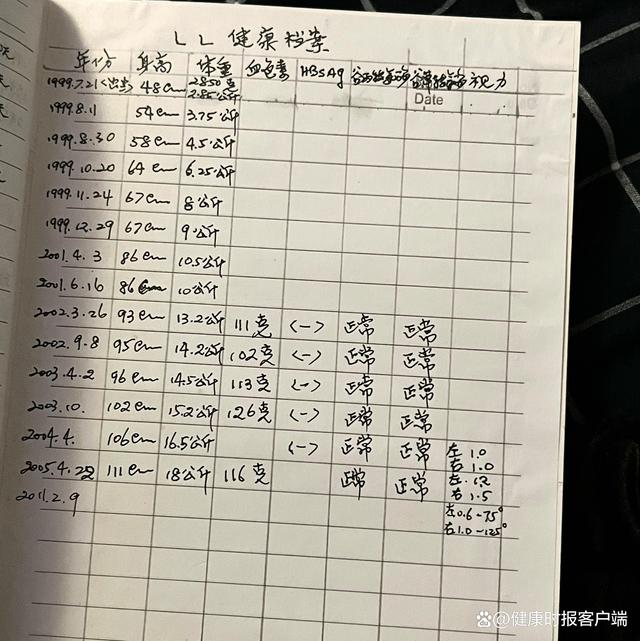 LL 健康档案
年份 身高 体重 血色素 HBsAg 谷丙转氨酶 谷草转氨酶 视力
Date
1999.7.21(出生) 48cm 2850克
2.85公斤
1999.8.11 54cm 3.75公斤
1999.8.30 58cm 4.5公斤
1999.10.20 64cm 6.25公斤
1999.11.24 67cm 8公斤
1999.12.29 67cm 9公斤
2001.4.3 86cm 10.5公斤
2001.6.16 86cm 10公斤
2002.3.26 93cm 13.2公斤 111克 (-) 正常 正常
2002.9.8 95cm 14.2公斤 102克 (-) 正常 正常
2003.4.2 96cm 14.5公斤 113克 (-) 正常 正常
2003.10. 102cm 15.2公斤 126克 (-) 正常 正常
2004.4. 106cm 16.5公斤 (-) 正常 正常 左1.0
右1.0
2005.4.22 111cm 18公斤 116克 正常 正常 左1.2
右1.5
2011.2.9 左0.6-75°
右1.0-125°
健康时报客户端